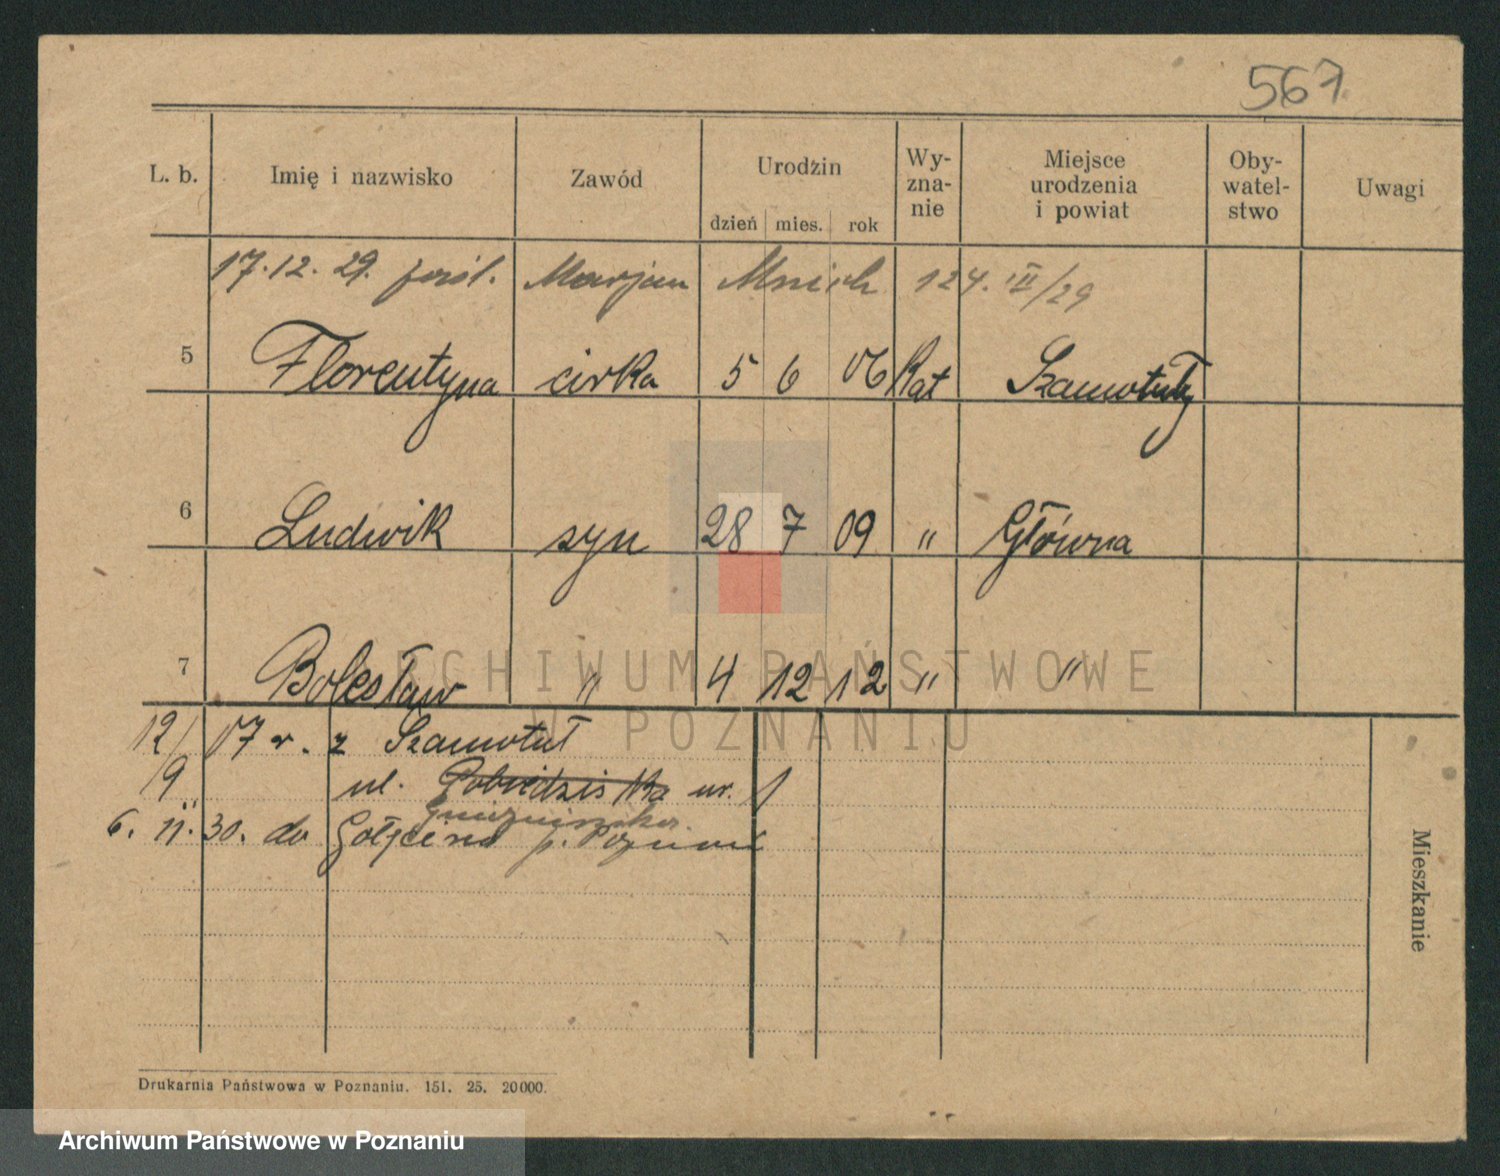 567
L. b. Imię i nazwisko Zawód Urodzin Wy- Miejsce Oby- Uwagi
zna- urodzenia watel-
nie i powiat stwo
dzień mies. rok
17. 12. 29. Marjan Mnich 124. III/29
5 Florentyna cirka 5 6 06 Kat Szamotuły
6 Ludwik syn 28 7 09 " Główna
7 Bolesław " 4 12 12 " "
ARCHIWUM PAŃSTWOWE
W POZNANIU
12/9 07 r. z Szamotuł
ul. Pobiedziska nr. 1
Gnieźnieńska
6. 11. 30. do Golęcina p. Poznań
Mieszkanie
Drukarnia Państwowa w Poznaniu. 151. 25. 20000.
Archiwum Państwowe w Poznaniu